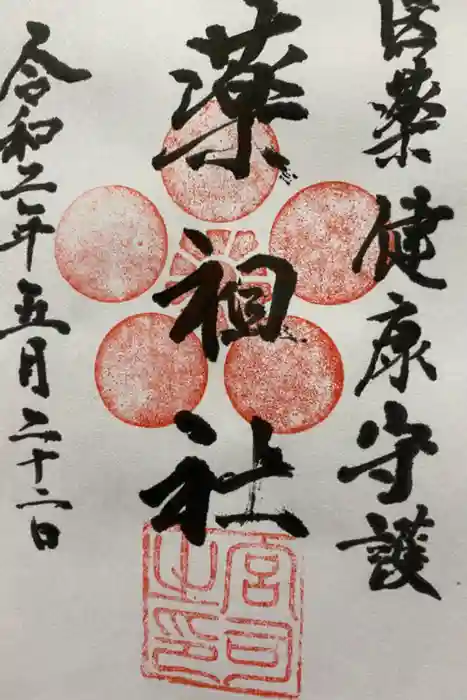 医薬 健康守護
薬祖社
令和二年五月二十二日
宮司之印